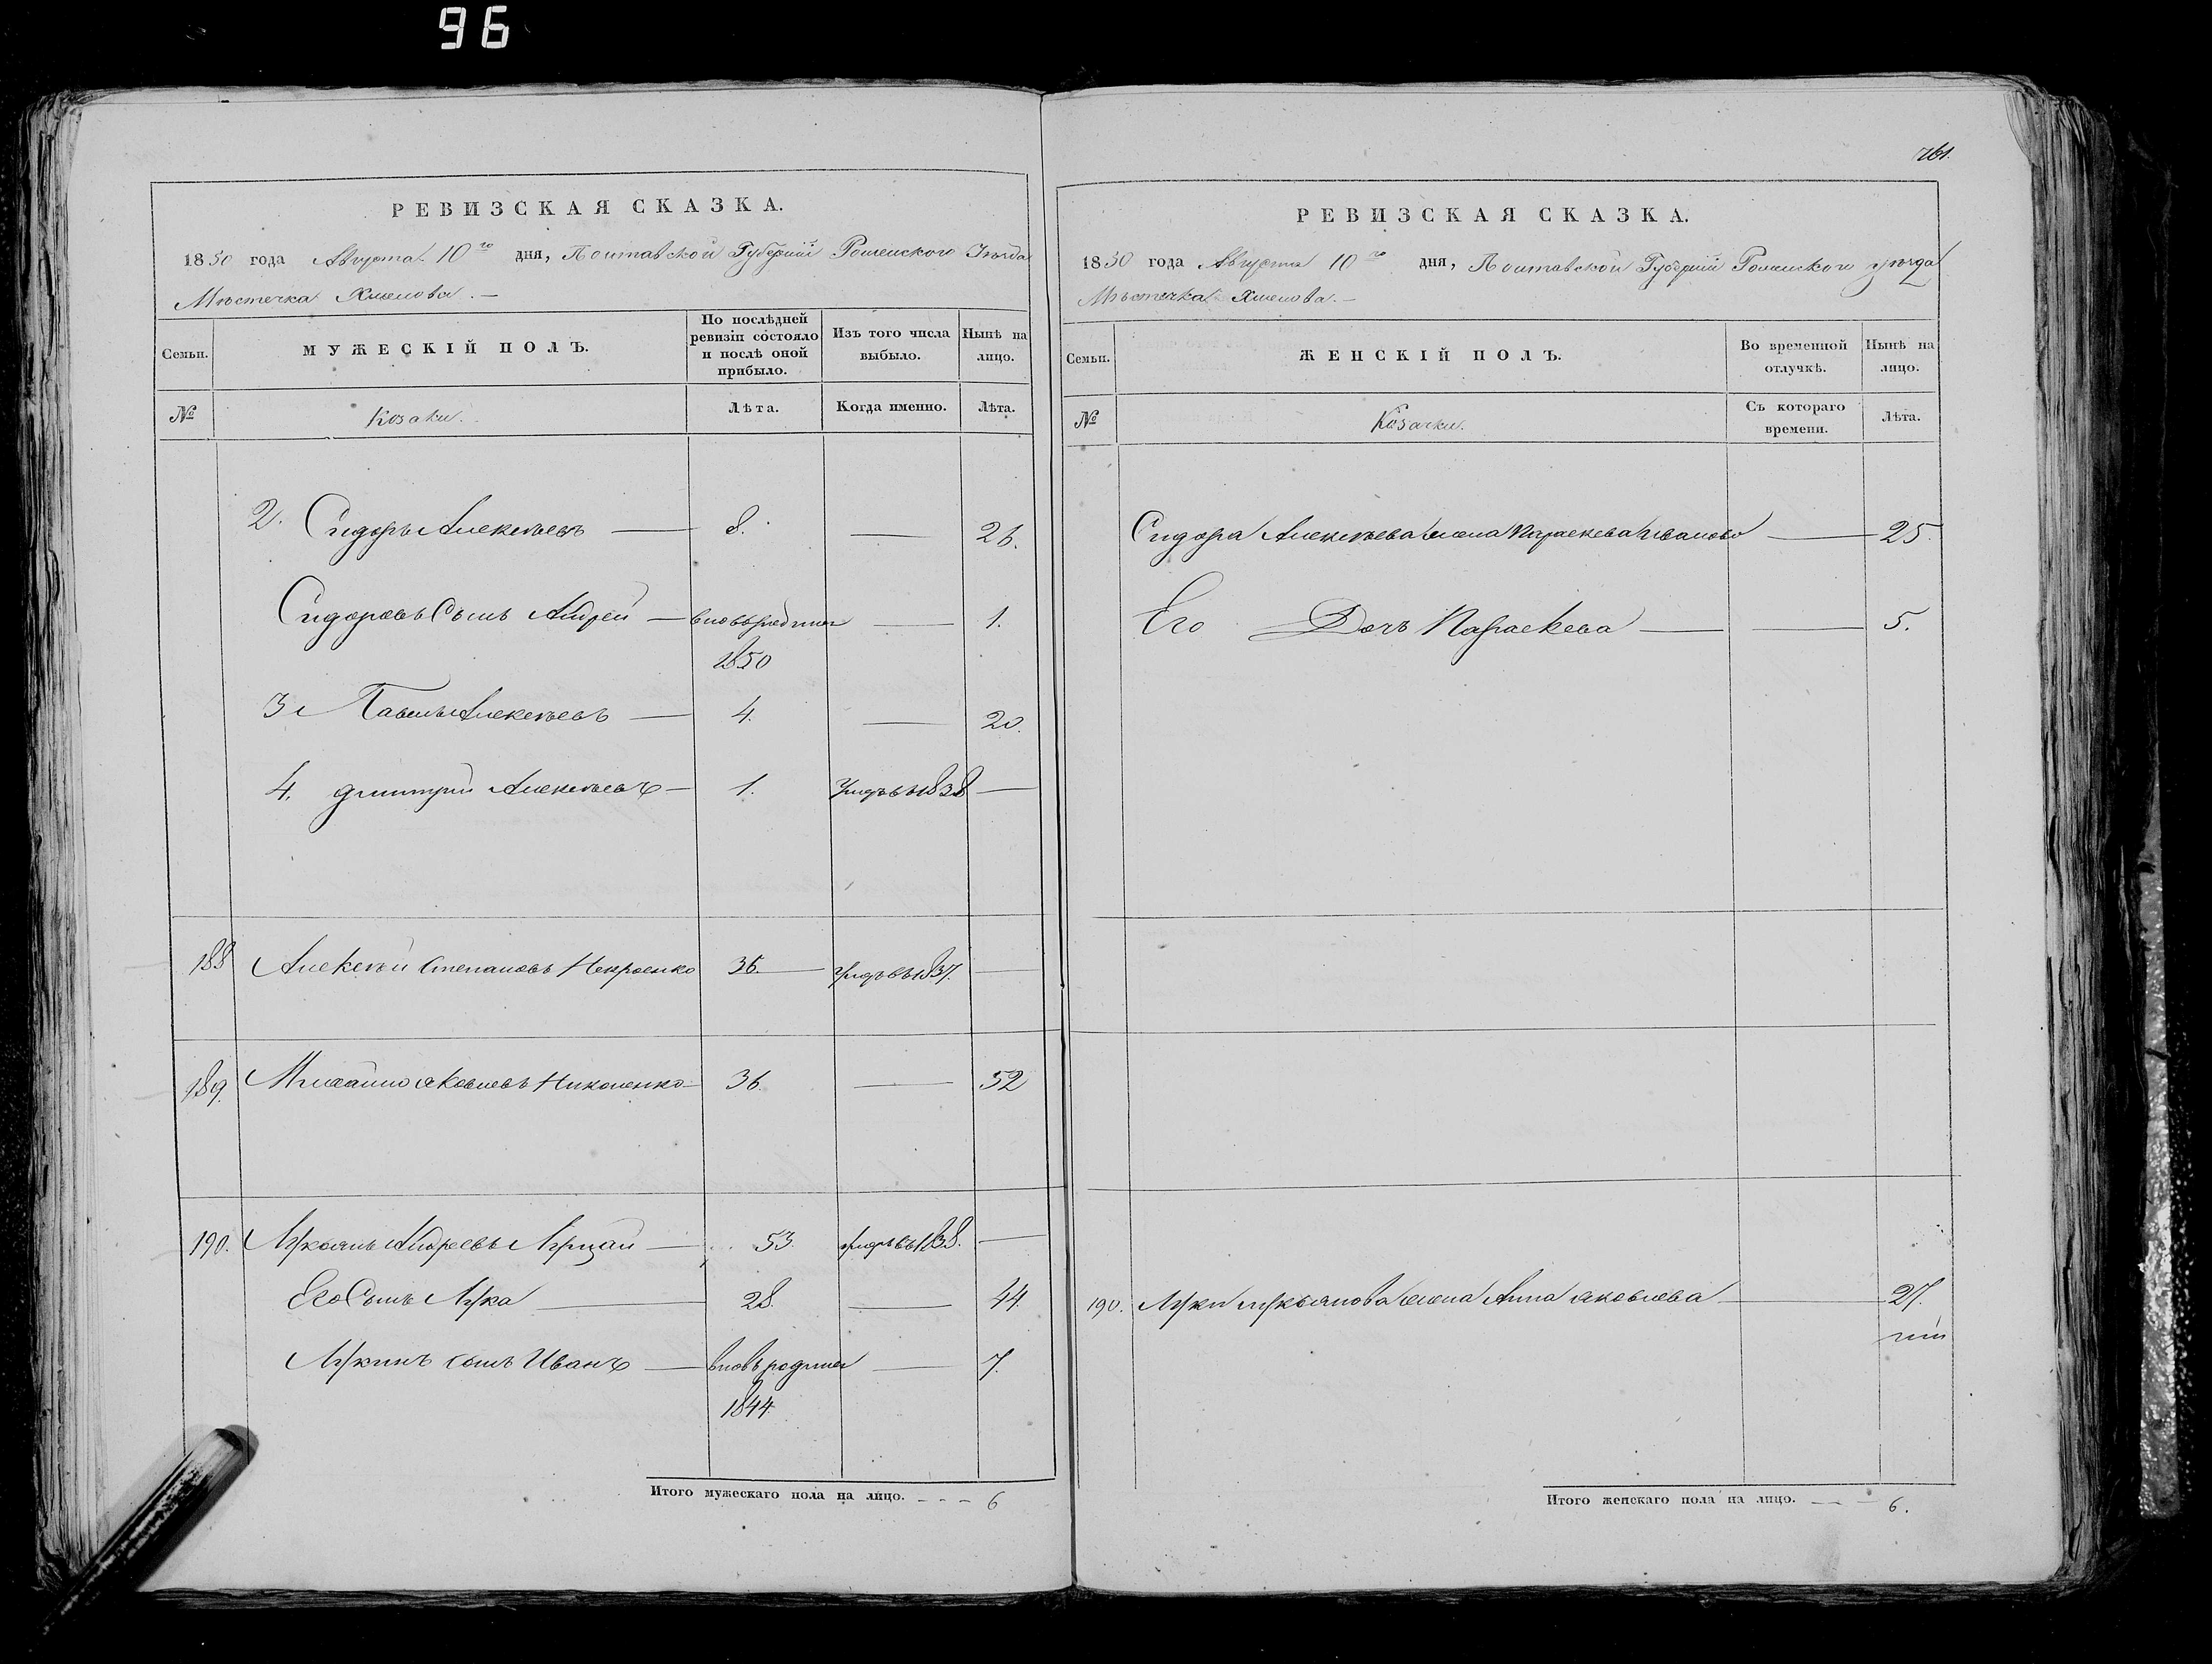 96
761.
РЕВИЗСКАЯ СКАЗКА.
1850 года Августа 10го дня, Полтавской Губерніи Роменского Уѣзда
Мѣстечка Хмелова. —
Семьи.
МУЖЕСКІЙ ПОЛЪ.
По послѣдней ревизіи состояло и послѣ оной прибыло.
Изъ того числа выбыло.
Нынѣ на лицо.
№
Козаки.
Лѣта.
Когда именно.
Лѣта.
2. Сидоръ Алексѣевъ — 8. — 26.
Сидоровъ Сынъ Андрей — вновьродился — 1.
1850
3 Павелъ Алексѣевъ — 4. — 20.
4. Дмитрій Алексѣевъ — 1. Умеръ въ 1838 —
188 Алексѣй Степановъ 36. — Умеръ въ 1837.
189. Михайло Яковлевъ Николенко — 36. — 52
190. Лукьянъ Андреевъ — 53. умеръ въ 1838. —
Его Сынъ Лука — 28. — 44.
Лукинъ сынъ Иванъ — вновь родился — 7.
1844
Итого мужескаго пола на лицо. - - - 6
РЕВИЗСКАЯ СКАЗКА.
1850 года Августа 10го дня, Полтавской Губерніи Роменского уѣзда
Мѣстечка Хмелова. —
Семьи.
ЖЕНСКІЙ ПОЛЪ.
Во временной отлучкѣ.
Нынѣ на лицо.
№
Козачки.
Съ котораго времени.
Лѣта.
Сидора Алексѣева жена Параскева Иванова — 25.
Его Дочь Параскева — — 5.
190. Луки Лукьянова жена Анна Яковлева — 27.
Итого женскаго пола на лицо. — — 6.